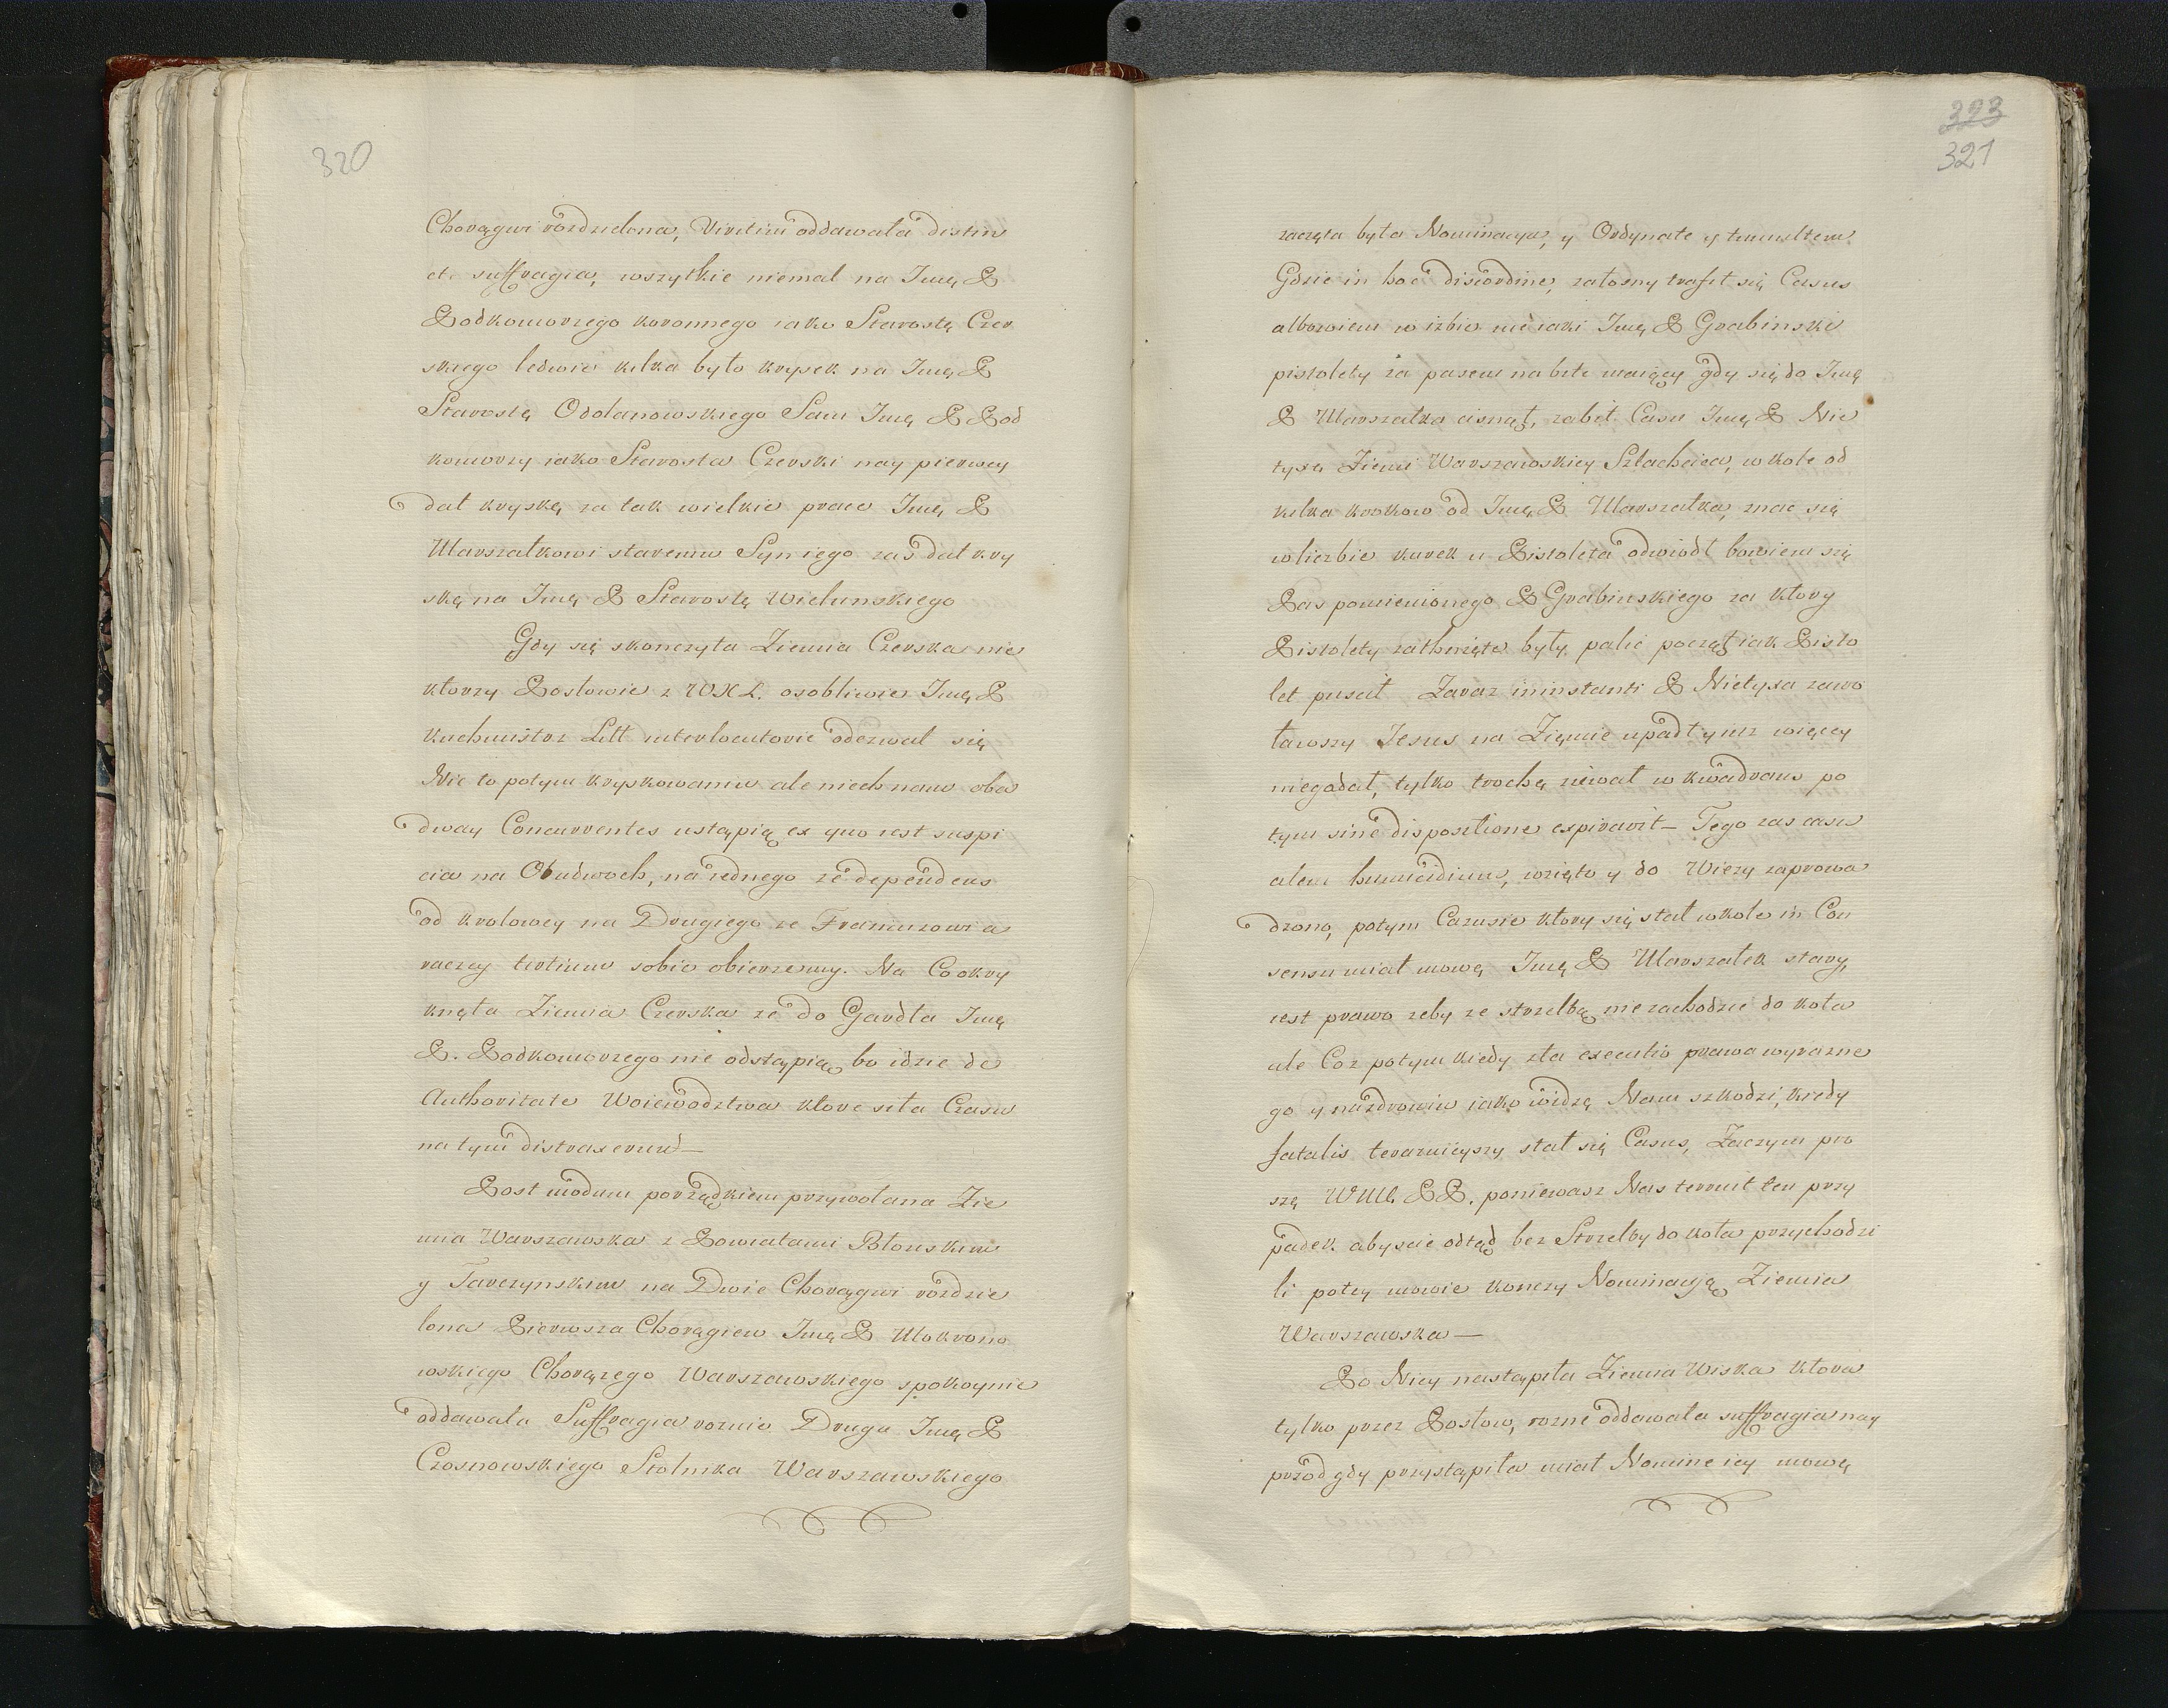 320
Chorągwi rozdzielona, Viritim oddawała distin
cte suffragia, wszytkie niemal na Imę P
Podkomorzego koronnego iako Starostę Czer
skiego ledwie kilka było krysek na Imę P
Starostę Odolanowskiego Sam Imę P Pod
komorzy iako Starosta Czerski nay pierwey
dał kryskę za tak wielkie prace Imę P
Marszałkowi staremu Syn iego zaś dał kry
skę na Imę P Starostę Wielunskiego
Gdy się skonczyła Ziemia Czerska nie
ktorzy Posłowie z WXL. osobliwie Imę P
Kuchmistrz Litt interlocutorie odezwał się
Nic to potym kryskowaniu ale niech nam oba
dway Concurrentes ustąpią ex quo iest suspi
cia na Obudwoch, na iednego że dependens
od krolowey na Drugiego że Francuzowi a
raczey tertium sobie obierzemy. Na Co okrzy
knęła Ziemia Czerska że do Gardła Imę
P. Podkomorzego nie odstąpią, bo idzie de
Authoritate Woiewodztwa ktore siła Czasu
na tym distraxerunt —
Post modum porządkiem przywołana Zie
mia Warszawska z Powiatami Błonskim
y Tarczynskim na Dwie Chorągwi rozdzie
lona Pierwsza Chorągiew Imę P Mokrono
wskiego Chorążego Warszawskiego spokoynie
oddawała Suffragia rożnie Druga Imę P
Czosnowskiego Stolnika Warszawskiego
323
321
zaczęła była Nominacyą, y Ordynate y tumultem
Gdzie in hoc discordine, żałosny trafił się Casus
albowiem w izbie nieiaki Imę P Grabinski
pistolety za pasem nabite maiący gdy się do Imę
P Marszałka cisnął, zabił Casu Imę P Nie
tyxa Ziemi Warszawskiey Szlachcica, w kole od
kilka krokow od Imę P Marszałka, znac się
w liczbie kurek u Pistoleta odwiodł bowiem się
Pas pomienionego P Grabinskiego za ktory
Pistolety zathnięte były palic począł iak Pisto
let puscił Zaraz in instanti P Nietyxa zawo
ławszy Jesus na Ziemie upadł y nic więcey
niegadał, tylko trochę ziewał w kwadrans po
tym sine dispositione expiravit — Tego zas casu
alem humicidium, wzięto y do Wieży zaprowa
dzono, potym Cazusie ktory się stał w kole in Con
sensu miał mowę Imę P Marszałek stary,
iest prawo zeby ze strzelbą nie zachodzic do koła
ale Coz potym kiedy zła executio prawa wyrazne
go y na zdrowiu iako widzę Nam szkodzi, kiedy
fatalis teraznieyszy stał się Casus, Zaczym pro
szę WM. PP. poniewasz Nas terruit ten przy
padek abyscie odtąd bez Strzelby do koła przychodzi
li po tey mowie konczy Nominacyą Ziemia
Warszawska —
Po Niey nastąpiła Ziemia Wiska ktora
tylko przez Posłow, rozne oddawała suffragia nay
przod gdy przystąpiła miał Nomine iey mowę